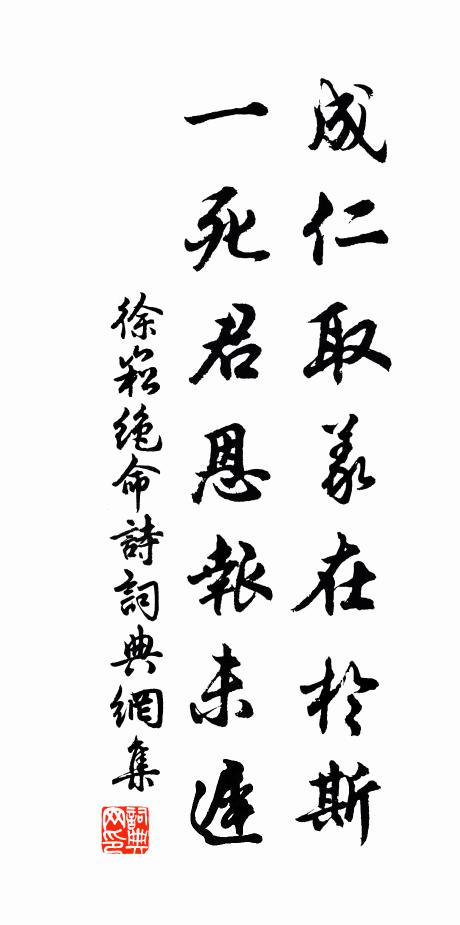 成仁取義在於斯
一死君恩報未遲
徐崧絶命詩詞典網集
詞典
网印